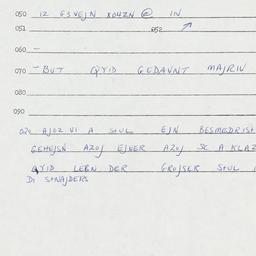 050 IZ GEVEJN XOUZN @ IN
051 052
060 —
070 — BUT QYID GEDAVNT MAJRIV
080
090
020 AJOZ VI A SHUL EJN BESMEDRISH
GEHEJSN AZOJ EJNER AZOJ SC A KLAZ
QYID LEBN DER GROJSER SHUL
DI SHNAJDERS